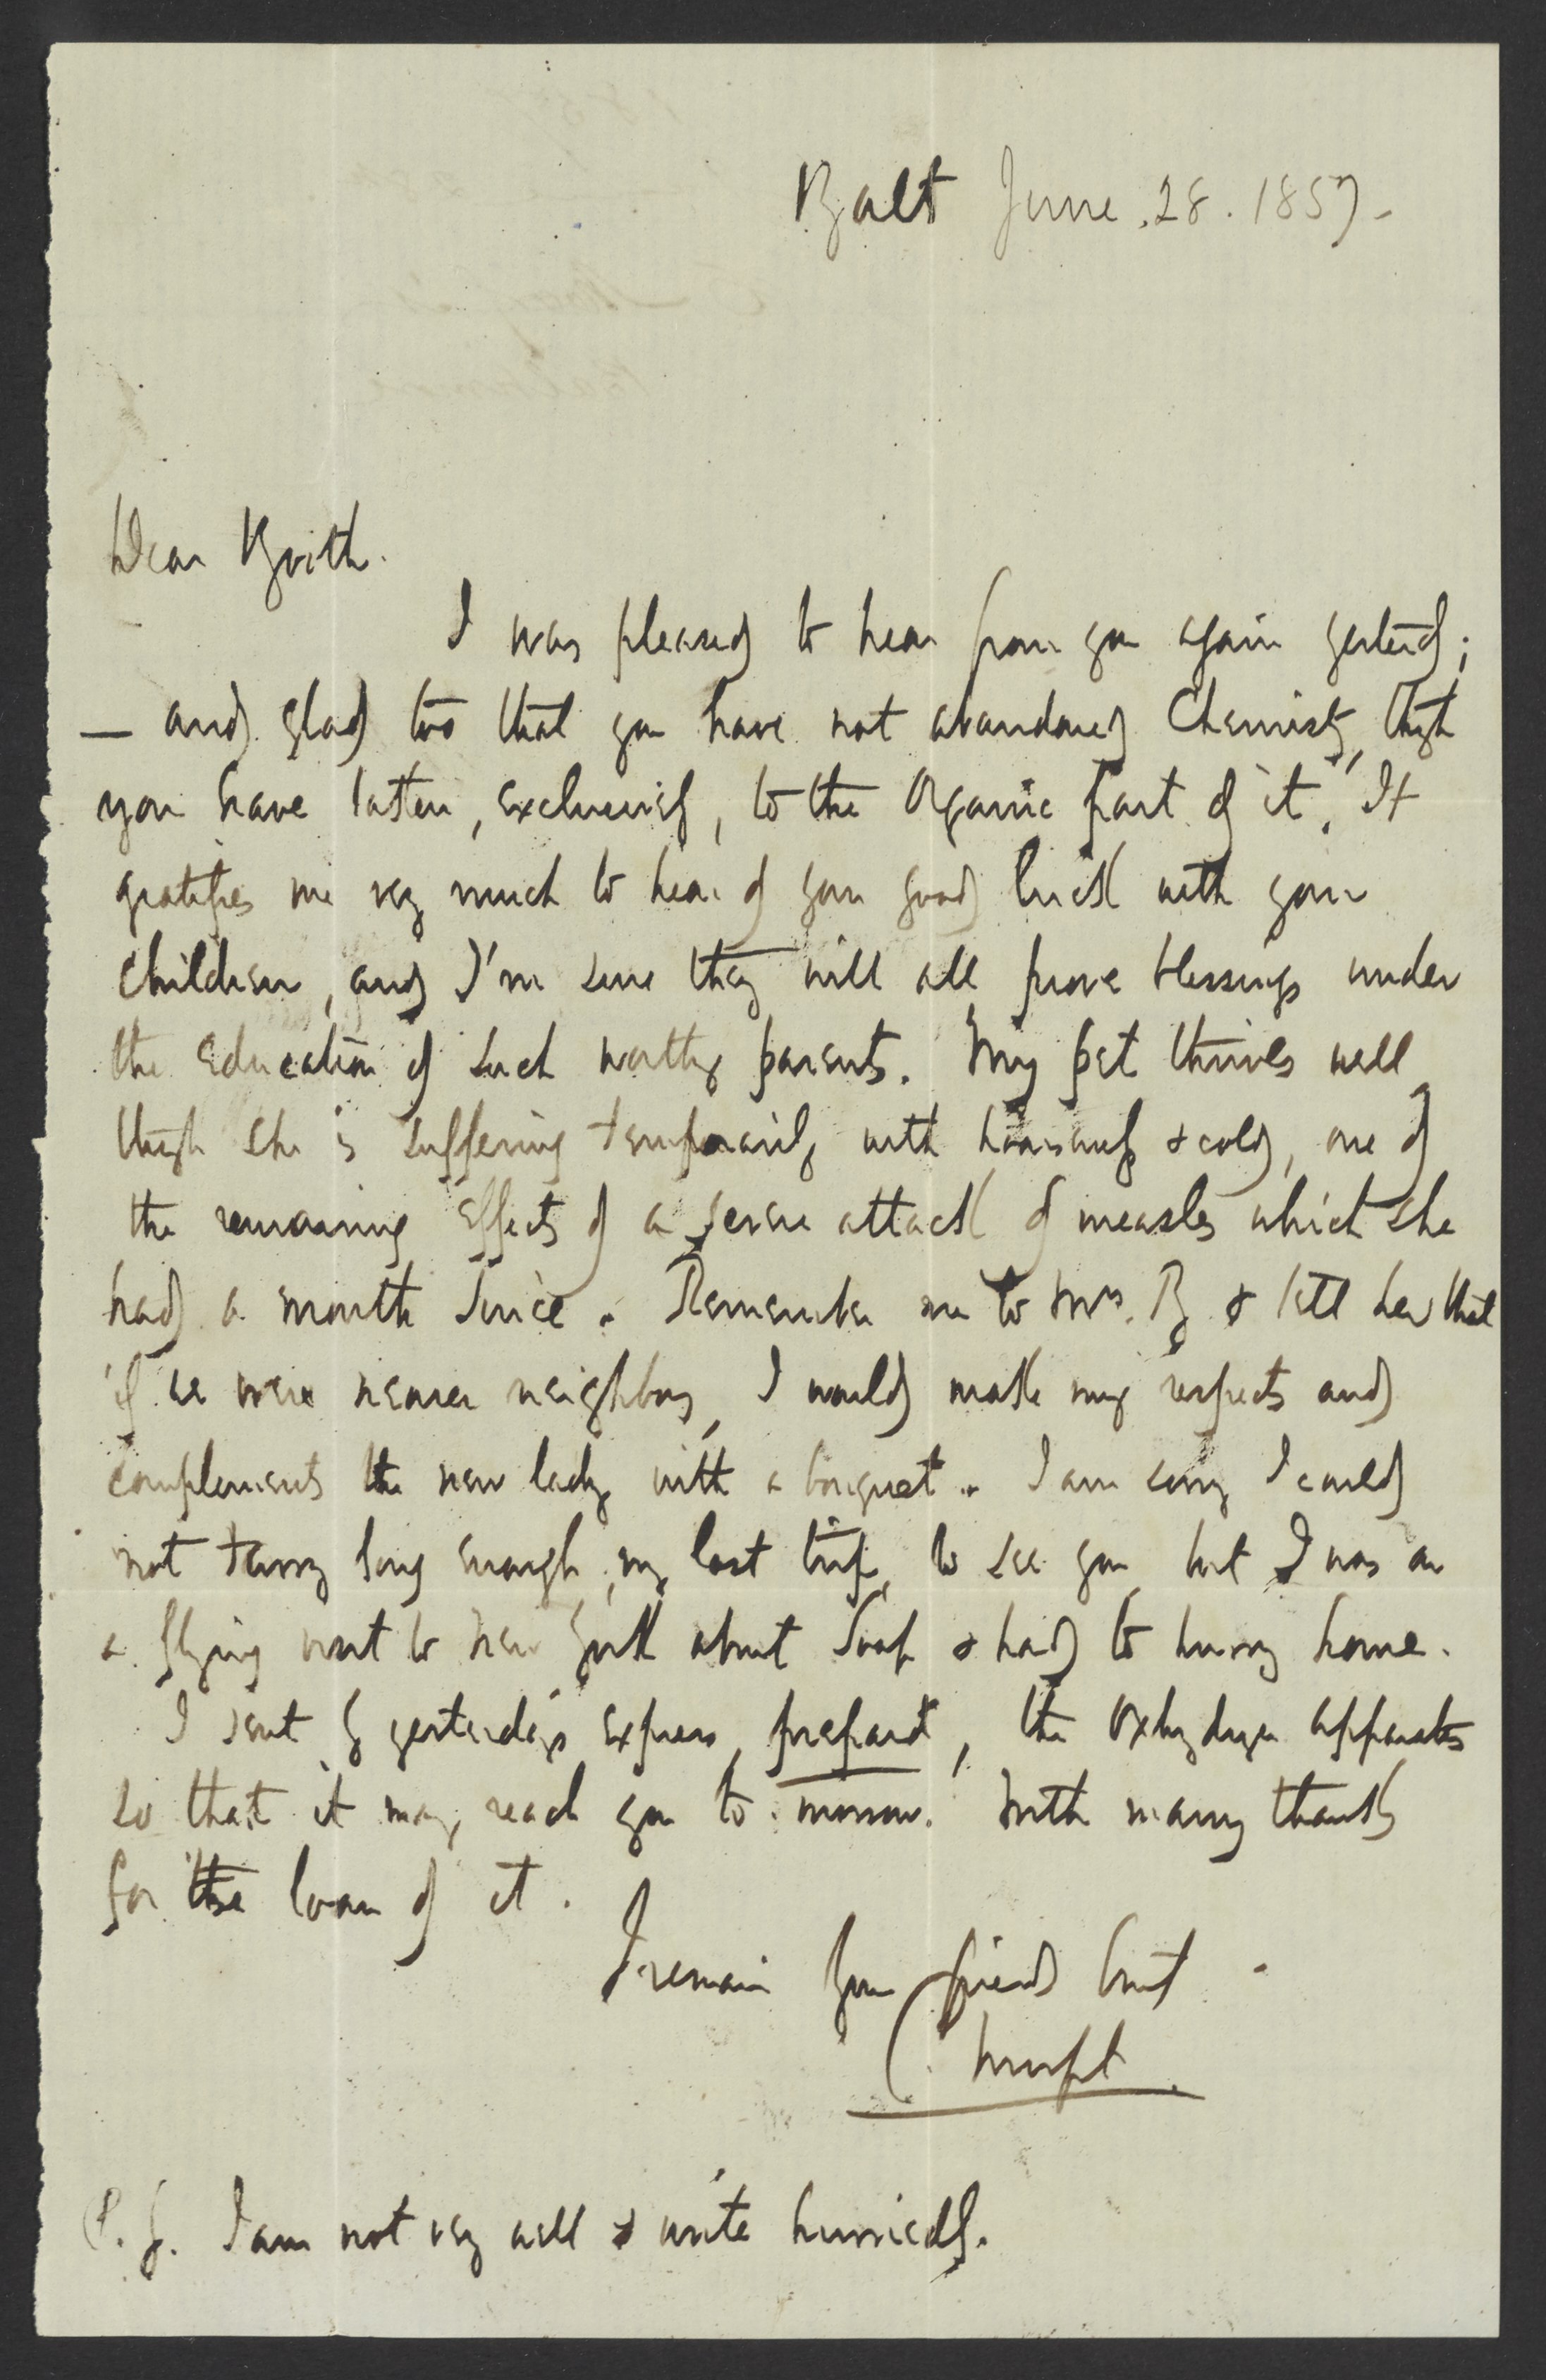 Balt June. 28. 1857 -
Dear Booth.
I was pleased to hear from you again yesterdy;
— and glad too that you have not abandoned Chemistry, though
you have taken, exclusively, to the Organic part of it. It
gratifies me very much to hear of your good luck with your
children, and I'm sure they will all prove blessings under
the education of such worthy parents. My pet thrives well
though she is suffering temporarily with hoarseness & cold, one of
the remaining effects of a severe attack of measles which she
had a month since. Remember me to Mrs. B & tell her that
if we were nearer neighbors, I would make my respects and
complements the new lady with a bouquet. I am sorry I could
not tarry long enough, my last trip, to see you, but I was on
a flying visit to New York about Soap & had to hurry home.
I sent by yesterday's express, prepaid, the Oxhydrgen apparatus
so that it may reach you to morrow. With many thanks
for the loan of it.
I remain your friend
C. Morfit
P.S. I am not very well & write hurriedly.